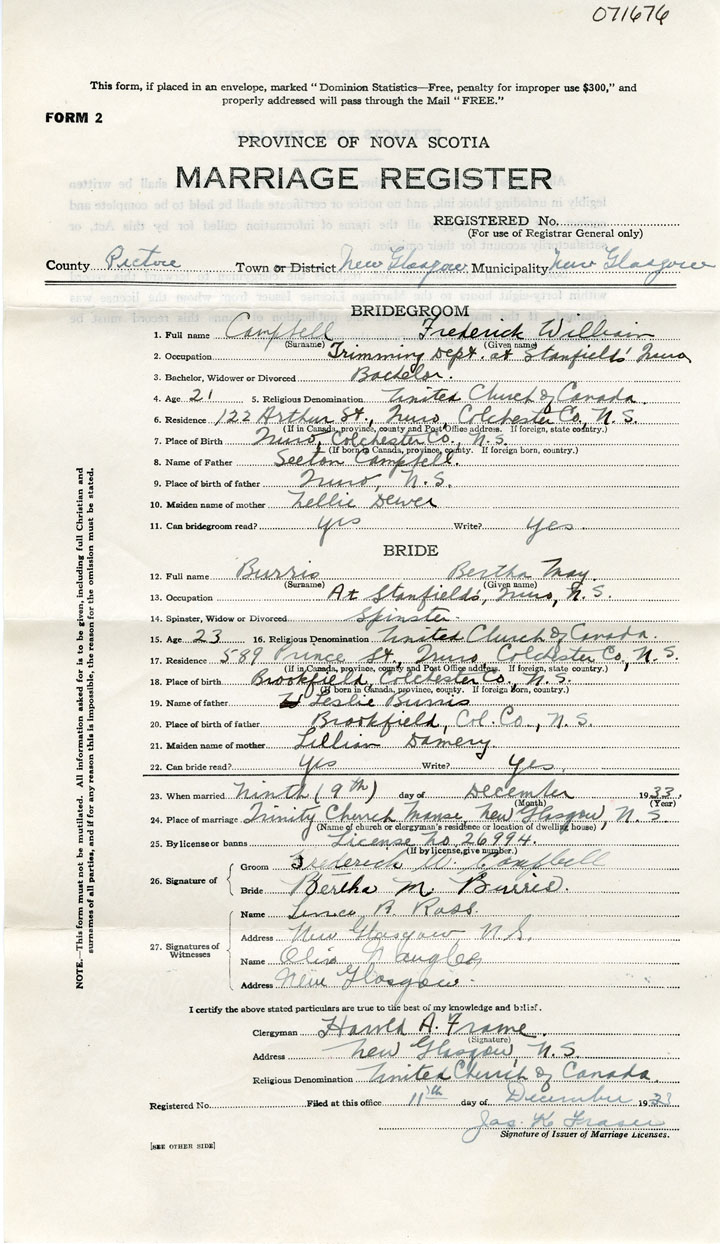 071676
This form, if placed in an envelope, marked “Dominion Statistics—Free, penalty for improper use $300,” and
properly addressed will pass through the Mail “FREE.”
FORM 2
PROVINCE OF NOVA SCOTIA
MARRIAGE REGISTER
REGISTERED No.
(For use of Registrar General only)
County Pictou Town or District New Glasgow Municipality New Glasgow
BRIDEGROOM
1. Full name Campbell Frederick William
(Surname) (Given name)
2. Occupation Trimming Dept. at Stanfields' Truro
3. Bachelor, Widower or Divorced Bachelor.
4. Age 21 5. Religious Denomination United Church of Canada.
6. Residence 122 Arthur St., Truro, Colchester Co., N.S.
(If in Canada, province, county and Post Office address. If foreign, state country.)
7. Place of Birth Truro, Colchester Co., N.S.
(If born in Canada, province, county. If foreign born, country.)
8. Name of Father Seeton Campbell.
9. Place of birth of father Truro, N.S.
10. Maiden name of mother Nellie Dewer
11. Can bridegroom read? yes Write? yes.
BRIDE
12. Full name Burris Bertha May.
(Surname) (Given name)
13. Occupation At Stanfields', Truro, N.S.
14. Spinster, Widow or Divorced Spinster.
15. Age 23 16. Religious Denomination United Church of Canada.
17. Residence 589 Prince St., Truro, Colchester Co., N.S.
(If in Canada, province, county and Post Office address. If foreign, state country.)
18. Place of birth Brookfield, Colchester Co., N.S.
(If born in Canada, province, county. If foreign born, country.)
19. Name of father Leslie Burris
20. Place of birth of father Brookfield, Col. Co., N.S.
21. Maiden name of mother Lillian Damery.
22. Can bride read? yes Write? yes.
23. When married Ninth (9th) day of December 1933.
(Month) (Year)
24. Place of marriage Trinity Church Manse, New Glasgow, N.S
(Name of church or clergyman's residence or location of dwelling house)
25. By license or banns License No. 26994.
(If by license, give number.)
26. Signature of
Groom Frederick W. Campbell
Bride Bertha M Burris.
27. Signatures of Witnesses
Name R. Ross.
Address New Glasgow N.S.
Name
Address New Glasgow.
I certify the above stated particulars are true to the best of my knowledge and belief.
Clergyman Harold A. Frame.
(Signature)
Address New Glasgow N.S.
Religious Denomination United Church of Canada.
Registered No. Filed at this office 11th day of December 1933
Jas. K Fraser
Signature of Issuer of Marriage Licenses.
[SEE OTHER SIDE]
NOTE.—This form must not be mutilated. All information asked for is to be given, including full Christian and
surnames of all parties, and if for any reason this is impossible, the reason for the omission must be stated.